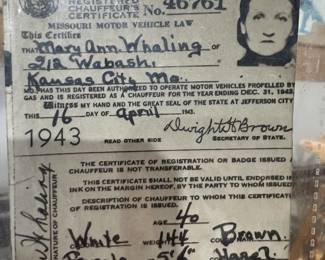 REGISTERED
CHAUFFEUR'S
CERTIFICATE
No. 46761
MISSOURI MOTOR VEHICLE LAW
This Certifies
THAT Mary Ann Whaling
212 Wabash.
Kansas City Mo.
HAS THIS DAY BEEN AUTHORIZED TO OPERATE MOTOR VEHICLES PROPELLED BY
GAS AND IS REGISTERED AS A CHAUFFEUR FOR THE YEAR ENDING DEC. 31, 1943.
Witness MY HAND AND THE GREAT SEAL OF THE STATE AT JEFFERSON CITY
THIS 16 DAY OF April 1943.
Dwight H Brown
1943 READ OTHER SIDE SECRETARY OF STATE.
THE CERTIFICATE OF REGISTRATION OR BADGE ISSUED A
CHAUFFEUR IS NOT TRANSFERABLE.
THIS CERTIFICATE SHALL NOT BE VALID UNTIL ENDORSED IN
INK ON THE MARGIN HEREOF, BY THE PARTY TO WHOM ISSUED.
DESCRIPTION OF CHAUFFEUR TO WHOM THIS CERTIFICATE
OF REGISTRATION IS ISSUED.
AGE 40
White WEIGHT 144 Brown
5'6" Hazel